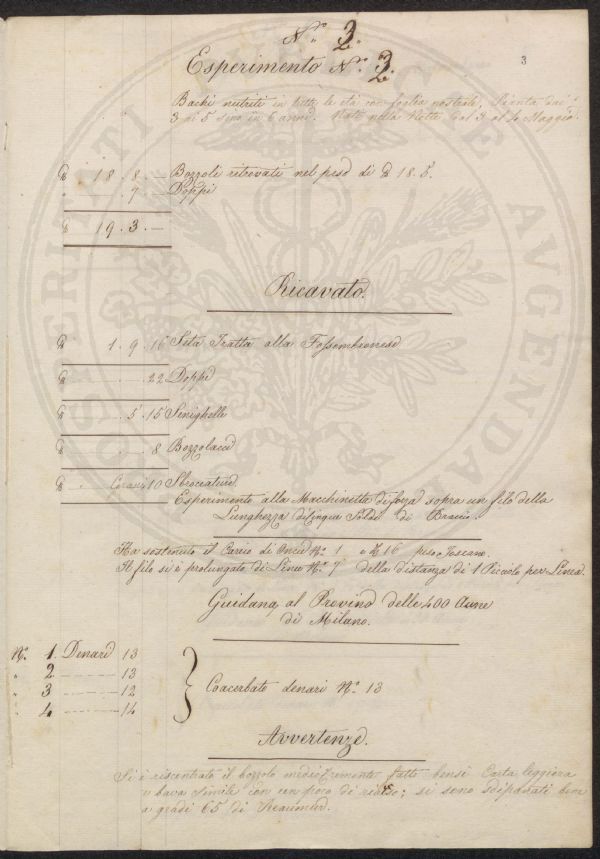 N.º 3.
Esperimento N.º 3.
3
Bachi nutriti in tutte le età con foglia nostrale, Pianta dai
3 ai 5 sino in 6 anni. Nati nella Notte dal 3 al 4 Maggio.
18 . 8 . — Bozzoli ritrovati nel peso di 18.5.
. 7 — Doppi
19 . 3 . —
Ricavato.
1 . 9 . 16 Seta Tratta alla Fossombronese
22 Doppi
5 . 15 Sinighelle
. 8 Bozzolacci
10 Sbrocature
Esperimento alla Macchinetta di forza sopra un filo della
Lunghezza di Cinque Soldi di Braccio.
Ha sostenuto il Carico di Oncie N.º 1 e 16 peso Toscano.
Il filo si è prolungato di Linee N.º 7 della distanza di 1 Piccolo per Linea.
Guidana al Provino delle 400 Aune
di Milano.
N.º 1. Denari 13
" 2 ——— 13
" 3 ——— 12
" 4 ——— 14
Coacerbato denari N.º 13
Avvertenze.
Si è riscontrato il bozzolo mediocremente fatto bensì Carta leggiera
e bava simile con un poco di ; si sono bene
a gradi 65 di Reaumur.
PROSPERITATI PUBLICAE AUGENDAE